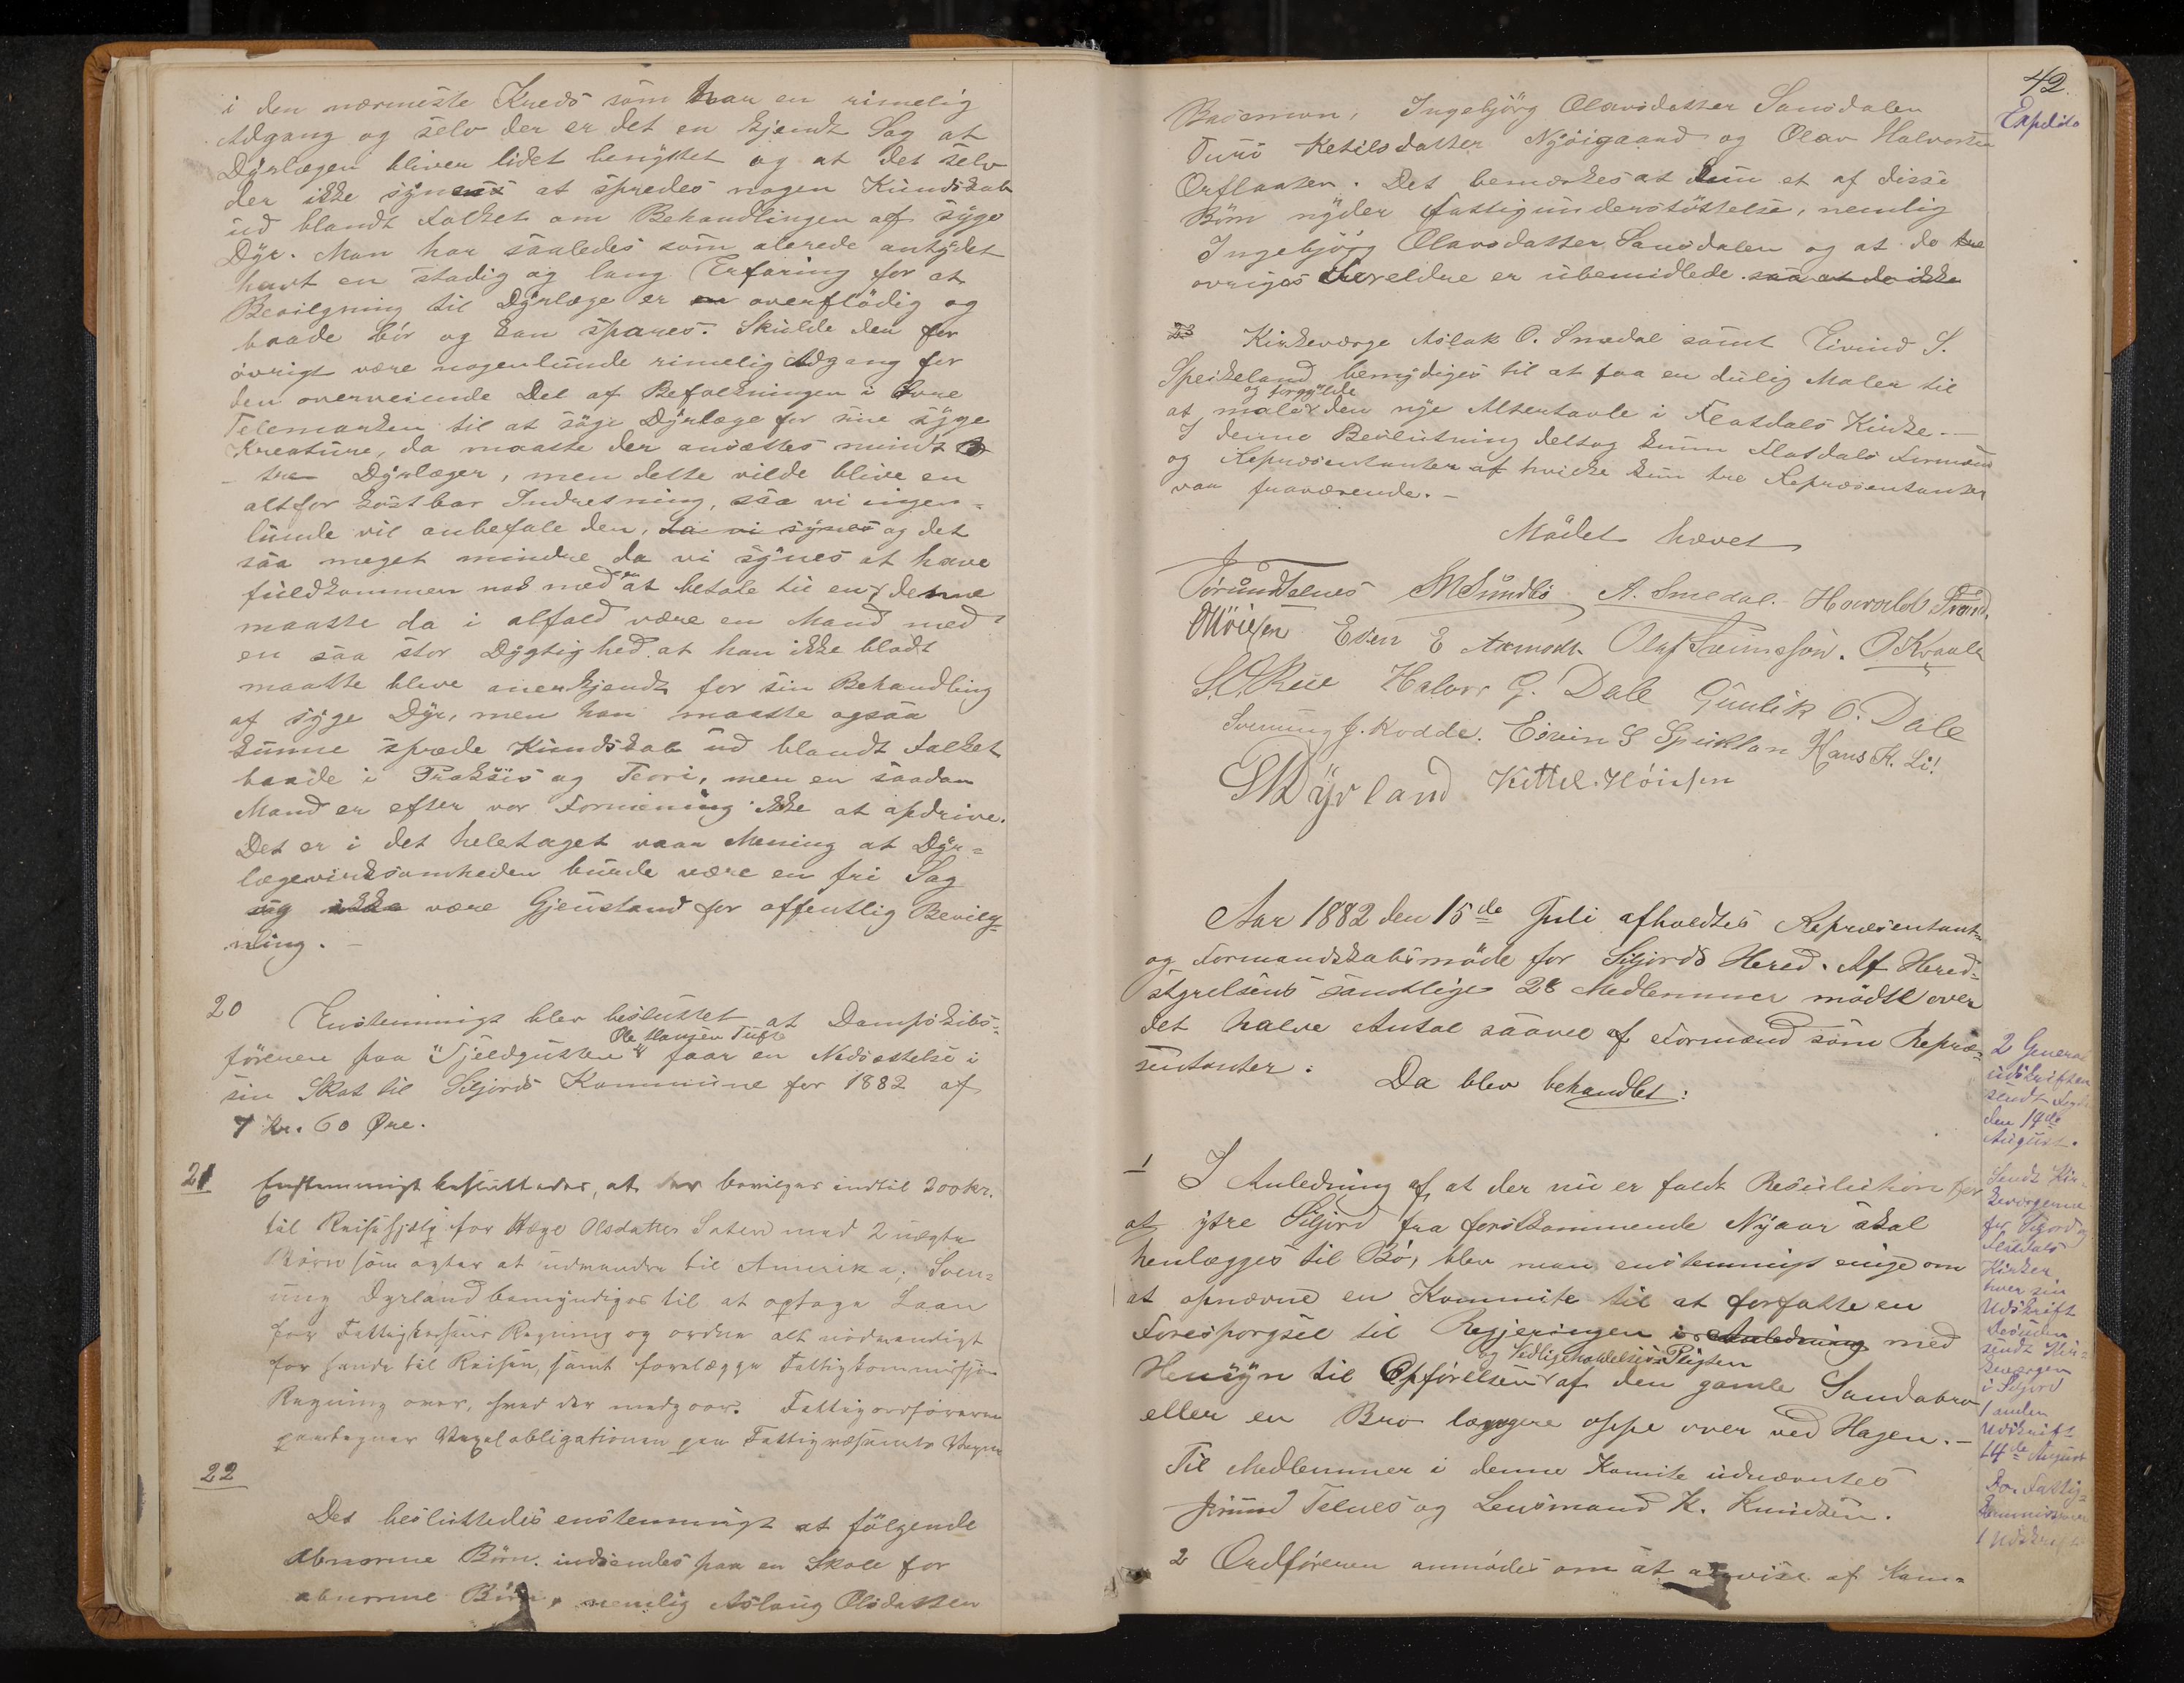 i den nærmeste Kreds som har en rimelig
Adgang og selv der er det en kjendt Sag at
Dyrlægen bliver lidet benyttet og at det selv
der ikke synes at spredes nogen Kundskab
ud blandt Folket om Behandlingen af syge
Dyr. Man har saaledes som alerede antydet
havt en stadig og lang Erfaring for at
Bevilgning til Dyrlæge er en overflödig og
baade bör og kan spares. Skulde den for
övrigt være nogenlunde rimelig Adgang for
den overveiende Del af Befolkningen i Övre
Telemarken til at söge Dyrlæge for sine syge
Kreature, da maatte der ansættes mindst
tre Dyrlæger, men dette vilde blive en
altfor kostbar Indretning, saa vi ingen=
lunde vil anbefale den, da vi synes og det
saa meget mindre da vi synes at have
fuldkommen nok med at betale til en, denne
maatte da i alfald være en Mand med
en saa stor Dygtighed at han ikke blodt
maatte bleve anerkjendt for sin Behandling
af syge Dyr, men han maatte ogsaa
kunne sprede Kundskab ud blandt Folket
baade i Praksis og Teori, men en saadan
Mand er efter vor Formening ikke at opdrive.
Det er i det heletaget vaar Mening at Dyr=
lægevirksomheden burde være en fri Sag
og ikke være Gjenstand for offentlig Bevilg=
ning. –
20 Enstemmigt blev besluttet at Dampskibs=
Ole Hansen Tufte
föreren paa "Fjeldgutten" faar en Nedsættelse i
sin Skat til Siljords Kommune for 1882 af
7 Kr. 60 Øre.
21 Enstemmigt besluttedes, at der bevilges indtil 200 kr.
til Reisehjælp for Hæge Olsdatter Saten med 2 uægte
Börn som agter at udvandre til Amerika; Sven=
ung Dyrland bemyndiges til at optage Laan
for Fattigkassens Regning og ordne alt nödvendigt
for hende til Reisen, samt forelægge Fattigkommissjon
Regning over, hvad der medgaar. Fattigordföreren
paategner Vexelobligationen paa Fattigvæsenets Vegne
22
Det besluttedes enstemmigt at fölgende
abnorme Börn indsendes paa en Skole for
abnorme Börn, nemlig Aslaug Olsdatter
42.
Expedito
Ingebjörg Olavsdatter Sandsdalen
Turö Ketilsdatter Nyöigaard og Olav Halvorsen
Orflaaten. Det bemærkes at kun et af disse
Börn nyder Fattigunderstöttelse, nemlig
Ingebjörg Olavsdatter Sandsdalen og at de tre
övriges Foreldre er ubemidlede saa at de ikke
23 Kirkeværge Aslak O. Smedal samt Eivind S.
Speikeland bemydiges til at faa en dulig Maler til
og forgylde
at male den nye Altertavle i Flatdals Kirke. –
I denne Beslutning deltog kunn Flatdals Formænd
og Repræsentanter af hvilke kun tre Repræsentanter
var fraværende. –
Mödet hævet
Jörund Telnes SM Sundbö A. Smedal. Havald Strand.
Even E Aamodt Olaf Sveinsson. O Kvaale
S.O. Rue Halvor G. Dale Gunlik O. Dale
Svenung J. Kodde. Eivin S Speiklan Hans K. Li!
SM Dyrland Kittil Höinsen
Aar 1882 den 15de Juli afholdtes Repræsentant=
og Formandskabsmöde for Siljords Hered. Af Hered=
styrelsens samtlige 28 Medlemmer mödte over
det halve Antal saavel af Formænd som Repræ=
sentanter.
Da blev behandlet:
1 I Anledning af at der nu er faldt Resulution for
at ytre Siljord fra førstkommende Nyaar skal
henlægges til Bö, blev man enstemmigt enige om
at opnævne en Kommite til at forfatte en
Foresporgsel til Regjeringen i Anledning med
og Vedligeholdelses Pligten
Hensyn til Opförelsen af den gamle Sandabro
eller en Bro længere oppe over ved Hagen. –
Til Medlemmer i denne Komite udnævntes
Jörund Telnes og Lensmand K. Knudsen.
2 Ordföreren anmodes om at anvise af Kom=
2 General
udskrifter
sendt Fogden
den 14de
August.
Sendt Kir=
keværgerne
for Siljord og
Flatdals
Kirker
hver sin
Udskrift
desuden
sendt Kir=
keværgen
i Siljord
1 anden
Udskrift
14de August
Do. Fattig=
kommissionen
1 Udskrift